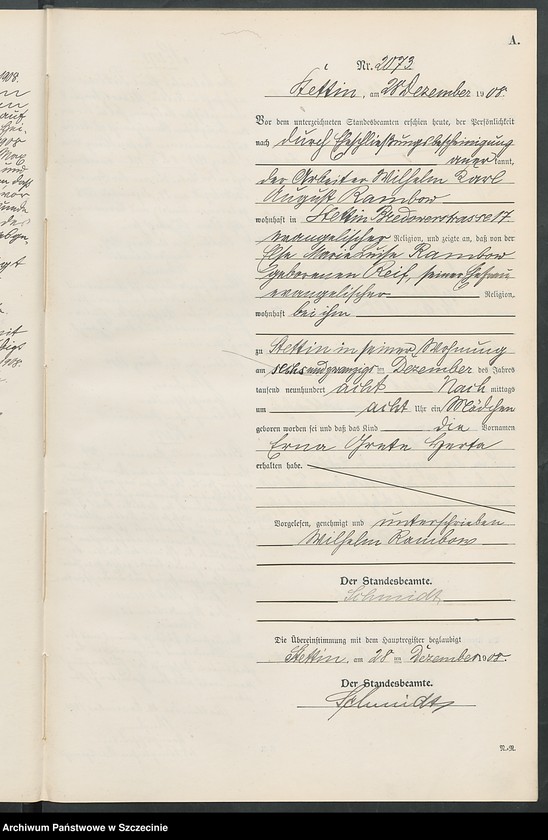 A.
Nr. 2073
Stettin, am 28 Dezember 1908.
Vor dem unterzeichneten Standesbeamten erschien heute, der Persönlichkeit
nach durch Eheschließungsbescheinigung
anerkannt,
der Arbeiter Wilhelm Karl
August Rambow
wohnhaft in Stettin Bredowerstrasse 17
evangelischer Religion, und zeigte an, daß von der
Else Marie Luise Rambow
geborenen Reif, seiner Ehefrau
evangelischer Religion,
wohnhaft bei ihm
zu Stettin in seiner Wohnung
am sechsundzwanzigsten Dezember des Jahres
tausend neunhundert acht Nachmittags
um acht Uhr ein Mädchen
geboren worden sei und daß das Kind die Vornamen
Erna Grete Herta
erhalten habe.
Vorgelesen, genehmigt und unterschrieben
Wilhelm Rambow
Der Standesbeamte.
Schmidt
Die Übereinstimmung mit dem Hauptregister beglaubigt
Stettin, am 28 ten Dezember 1908.
Der Standesbeamte.
Schmidt
Archiwum Państwowe w Szczecinie